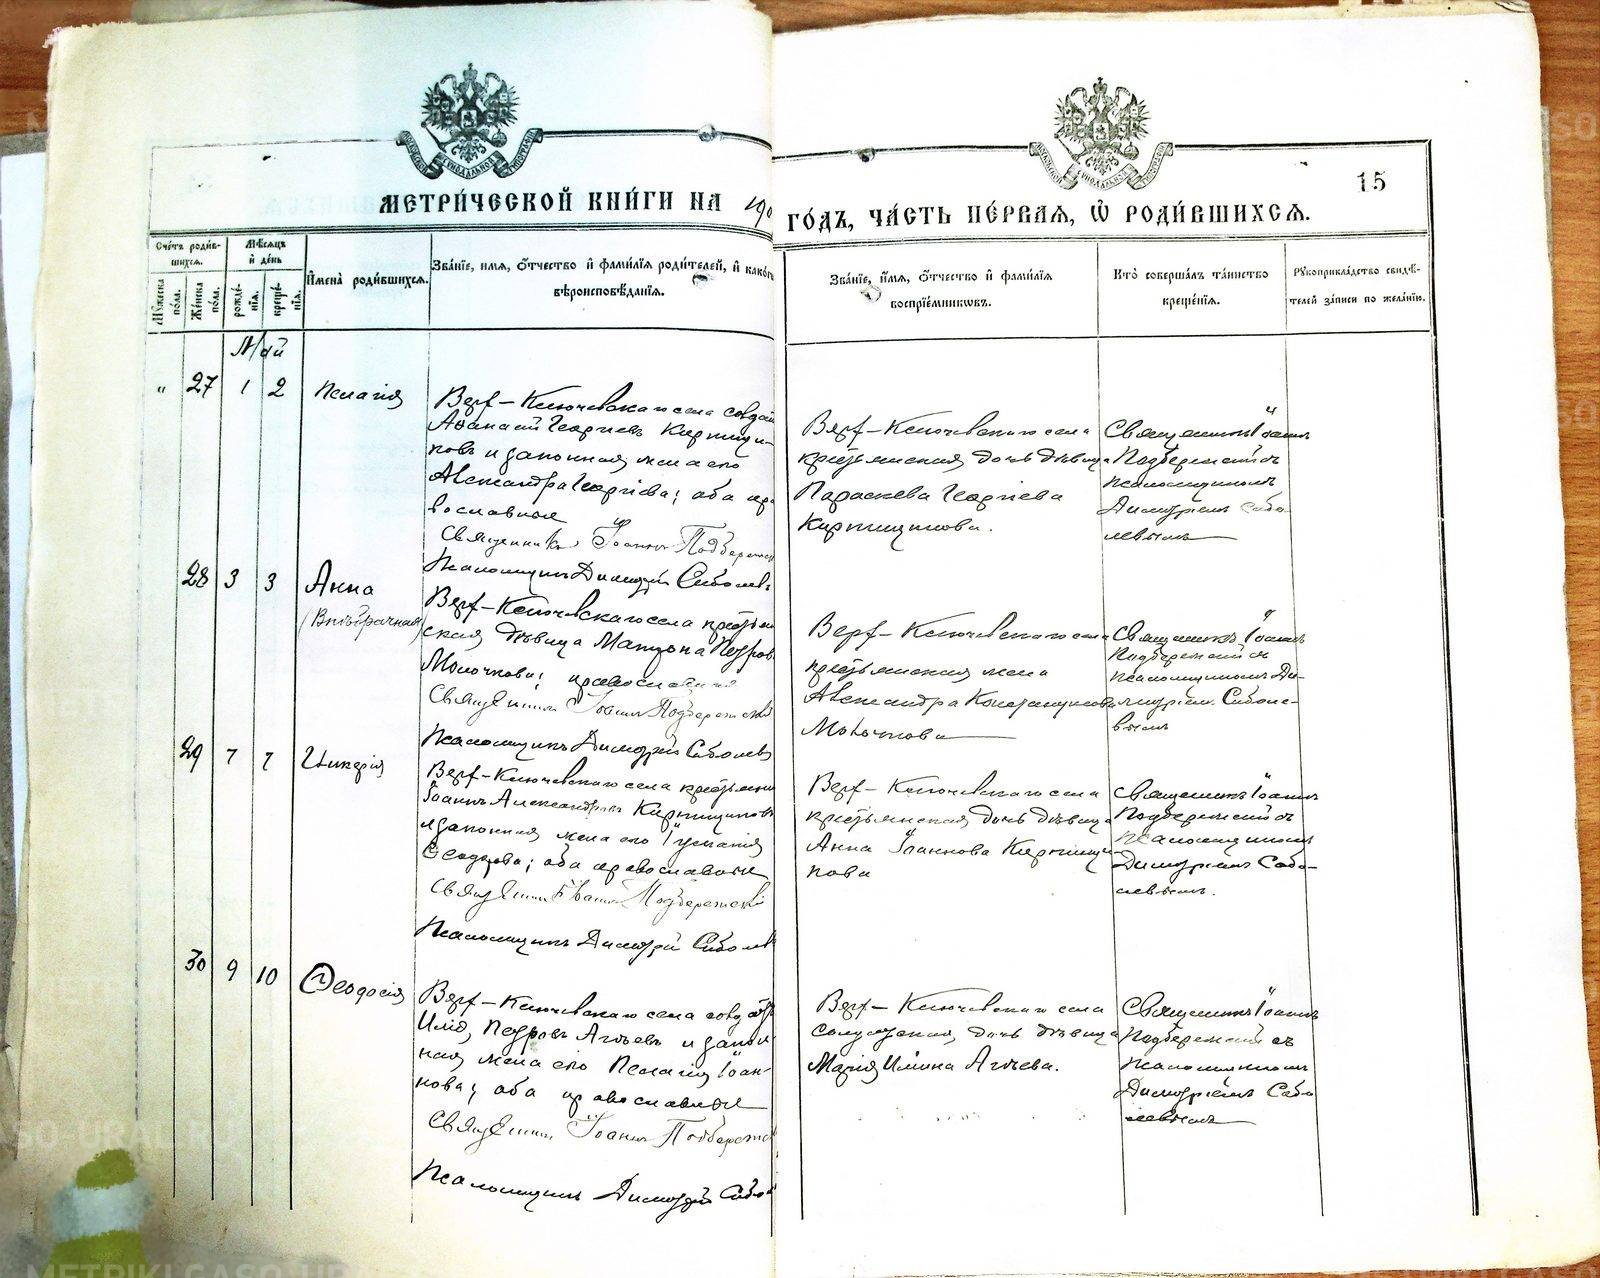 МЕТРИ́ЧЕСКОЙ КНИ́ГИ НА 190
ГО́ДЪ, ЧА́СТЬ ПЕ́РВАЯ, Ѿ РОДИ́ВШИХСѦ.
15
Сче́тъ роди́в-
шихсѧ.
Мѣ́сѧцъ
и҆ де́нь
Му́жеска
по́ла.
Же́нска
по́ла.
рожде́-
нїѧ.
креще́-
нїѧ.
И҆мена̀ роди́вшихсѧ.
Зва́нїе, имѧ, ѻ҆́тчество и҆ фами́лїѧ роди́телей, и҆ како́гѡ
вѣроисповѣ́данїѧ.
Зва́нїе, и҆́мѧ, ѻ҆́тчество и҆ фами́лїѧ
воспрїе́мникѡвъ.
Кто̀ соверша́лъ та́инство
креще́нїѧ.
Рꙋкоприкла́дство свидѣ́-
телей за́писи по жела́нїю.
Май
" 27 1 2 Пелагія
Верх-Ключевскаго села солдат
Аѳанасій Георгіевъ Кирпищи-
ковъ и законная жена его
Александра Георгіева; оба пра
вославные
Священникъ Іоаннъ Подбережск
Псаломщикъ Димитрій Соболевъ
Верх-Ключевскаго села
крестьянская дочь дѣвица
Параскева Георгіева
Кирпищикова.
Священникъ Іоаннъ
Подбережскій съ
псаломщикомъ
Димитріемъ Собо
левымъ
28 3 3 Анна
(Внѣбрачная)
Верх-Ключевскаго села крестьян
ская дѣвица Матрона Петров
Молочкова; православная
Священникъ Іоаннъ Подбережскій
Псаломщикъ Димитрій Соболевъ
Верх-Ключевскаго села
крестьянская жена
Александра Константинова
Молочкова
Священникъ Іоаннъ
Подбережскій съ
псаломщикомъ Ди-
митріемъ Соболе-
вымъ
29 7 7 Гликерія
Верх-Ключевскаго села крестьянин
Іоаннъ Александровъ Кирпищиковъ
и законная жена его Іустинія
Ѳеодорова; оба православные
Священникъ Іоаннъ Подбережскій
Псаломщикъ Димитрій Соболев
Верх-Ключевскаго села
крестьянская дочь дѣвица
Анна Іоаннова Кирпищи
кова
Священникъ Іоаннъ
Подбережскій съ
псаломщикомъ
Димитріемъ Собо-
левымъ.
30 9 10 Ѳеодосія
Верх-Ключевскаго села солдатъ
Илія Петровъ Агѣевъ и закон
ная жена его Пелагія Іоан-
нова; оба православные
Священникъ Іоаннъ Подбережс
Псаломщикъ Димитрій Собол
Верх-Ключевскаго села
солдатская дочь дѣвица
Марія Илііна Агѣева.
Священникъ Іоаннъ
Подбережскій съ
псаломщикомъ
Димитріемъ Собо
левымъ